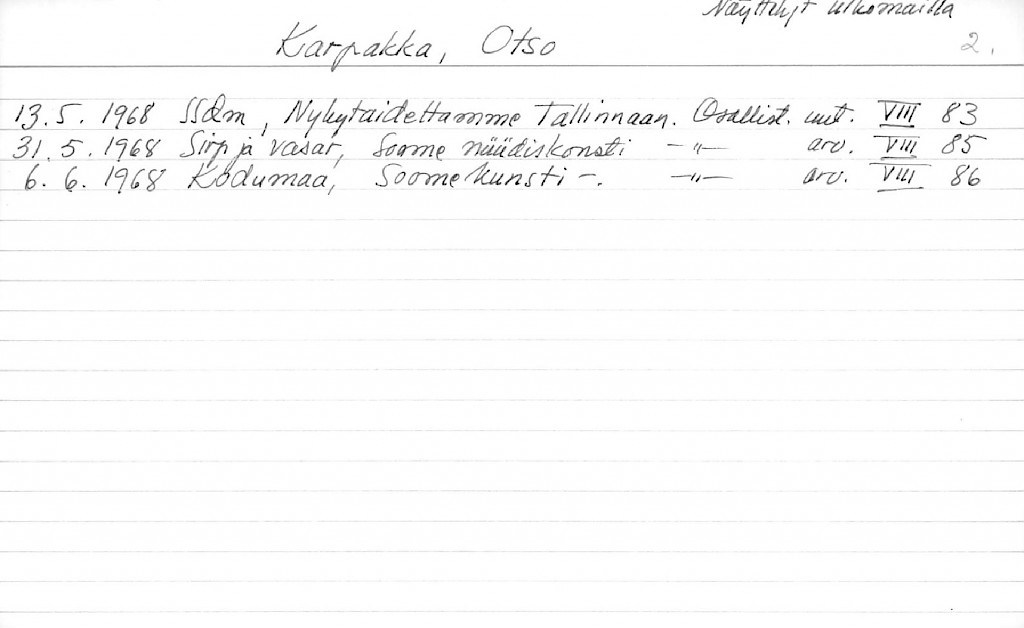 Näyttelyt ulkomailla
Karpakka, Otso 2.
13.5.1968 SSdm, Nykytaidettamme Tallinnaan. Osallist. uut. VIII 83
31.5.1968 Sirp ja vasar, Soome nüüdiskonsti —"— arv. VIII 85
6.6.1968 Kodumaa, Soome kunsti -. —"— arv. VIII 86